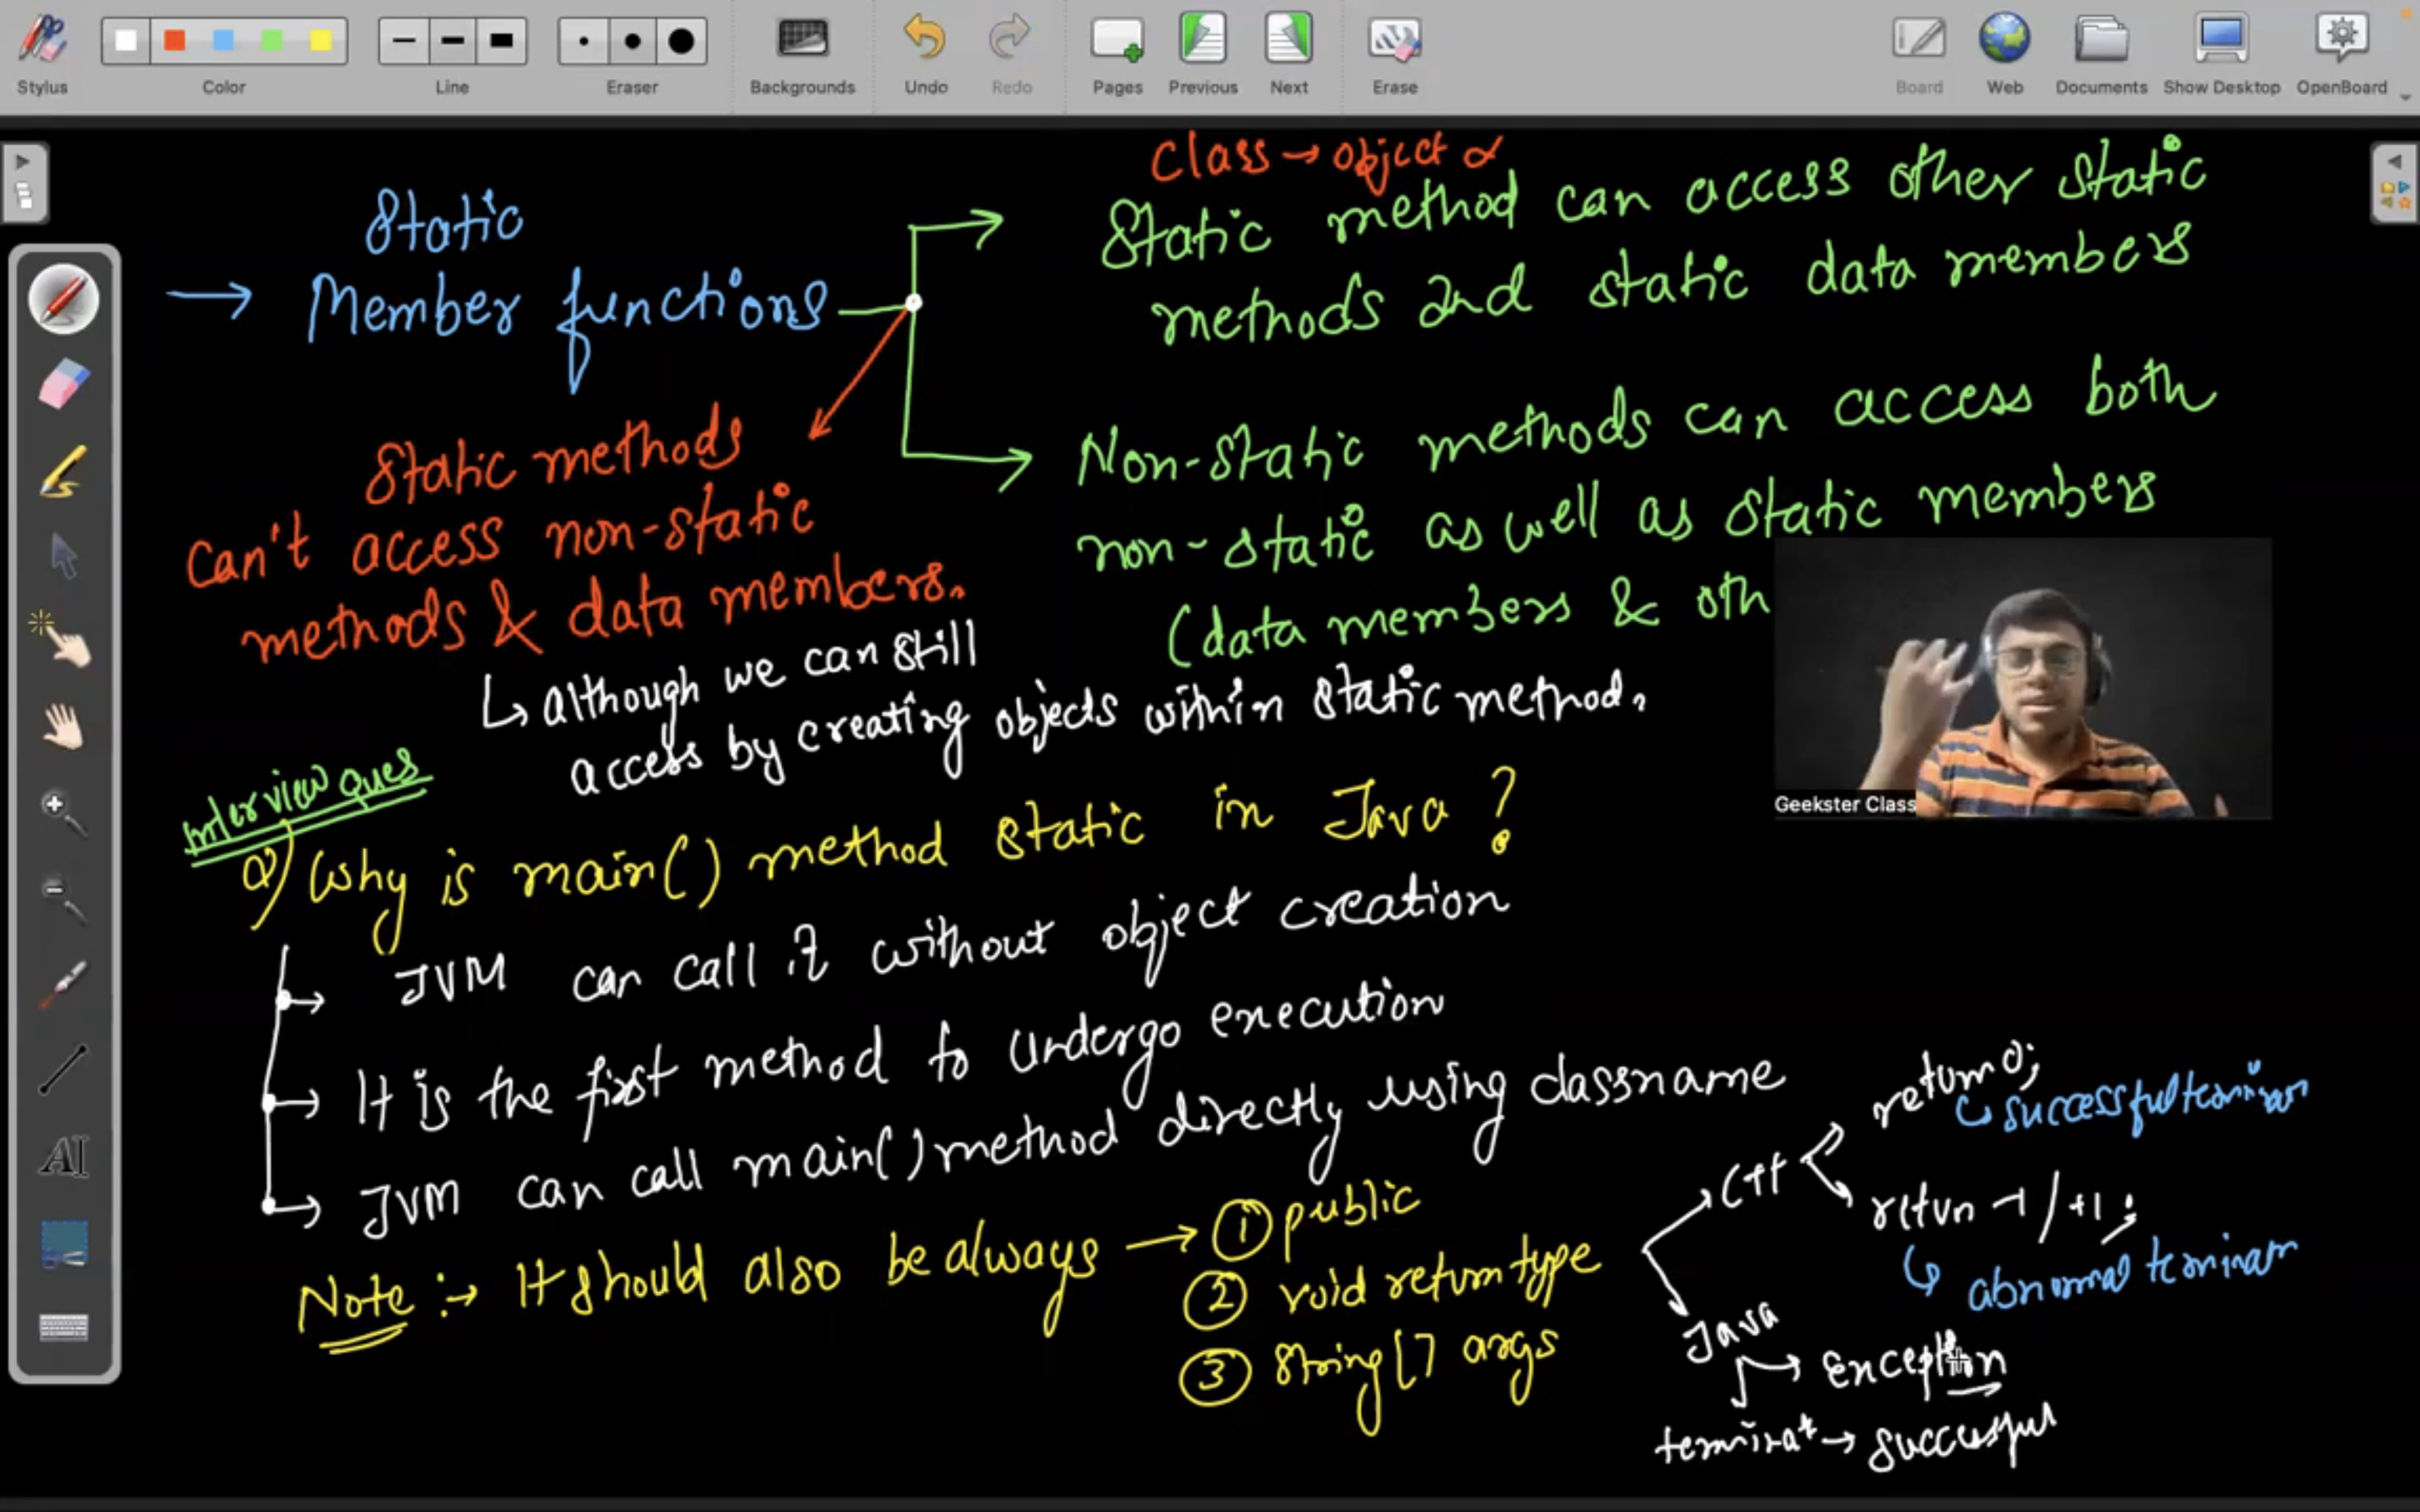 Stylus
Color
Line
Eraser
Backgrounds
Undo
Redo
Pages
Previous
Next
Erase
Board
Web
Documents
Show Desktop
OpenBoard
Class → object
Static
→ Member functions
Static method can access other static
methods and static data members
Non-static methods can access both
non-static as well as static members
(data members & oth
Static methods
can't access non-static
methods & data members.
↳ although we can still
access by creating objects within static method.
Geekster Class
Interview ques
Q) Why is main() method static in Java ?
→ JVM can call it without object creation
→ It is the first method to undergo execution
→ JVM can call main() method directly using classname
Note :→ It should also be always → ① public
② void return type
③ String[] args
C++
return 0;
↳ successful
return -1/+1;
↳ abnormal
Java
→ Exception
terminat → successful
AI